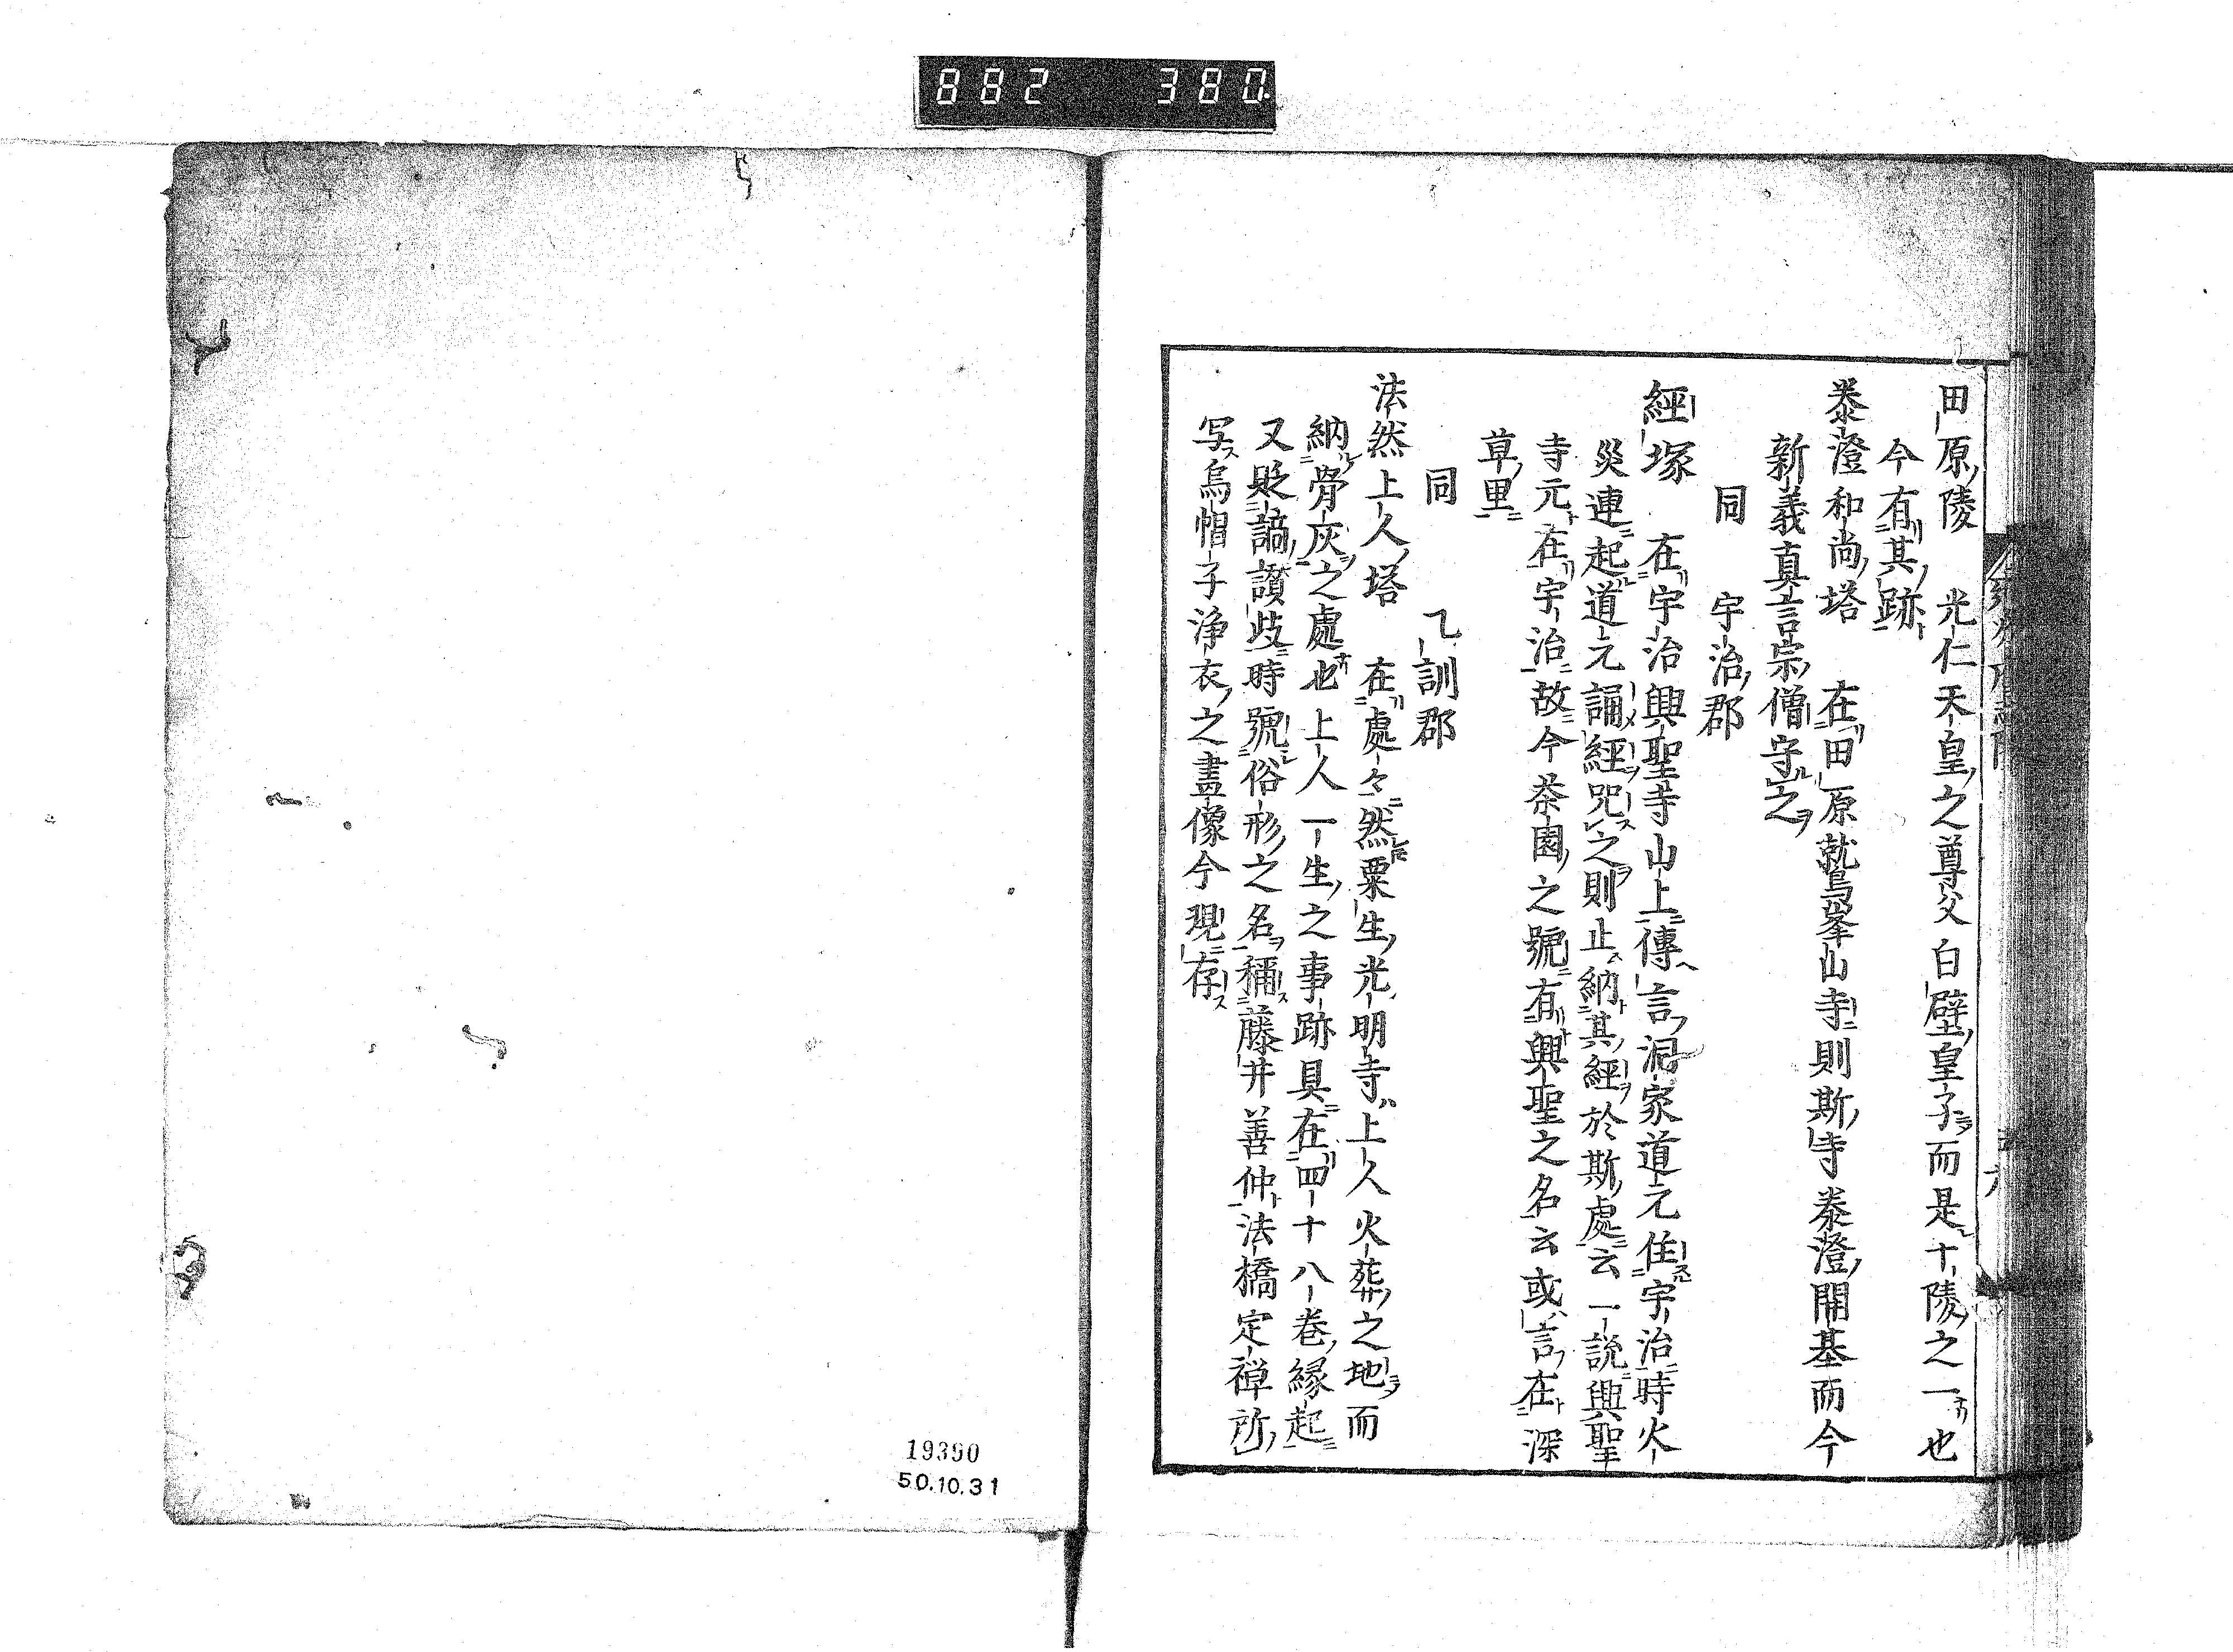 882 380
田原陵 光仁天皇之尊父白壁皇子而是十陵之一也
今有其跡
泰澄和尚塔 在田原鷲峯山寺則斯寺泰澄開基而今
新義真言宗僧守之
同 宇治郡
經塚 在宇治興聖寺山上傳言洞家道元住宇治時火
災連起道元誦經咒之則止納其經於斯處云一說興聖
寺元在宇治故今茶園之號有興聖之名云或言在深
草里
同 乙訓郡
法然上人塔 在處々然粟生光明寺上人火葬之地而
納骨灰之處也上人一生之事跡具在四十八卷縁起
又貶謫讃歧時號俗形之名稱藤井善仲法橋定禅所
写烏帽子浄衣之畫像今現存
19390
50.10.31